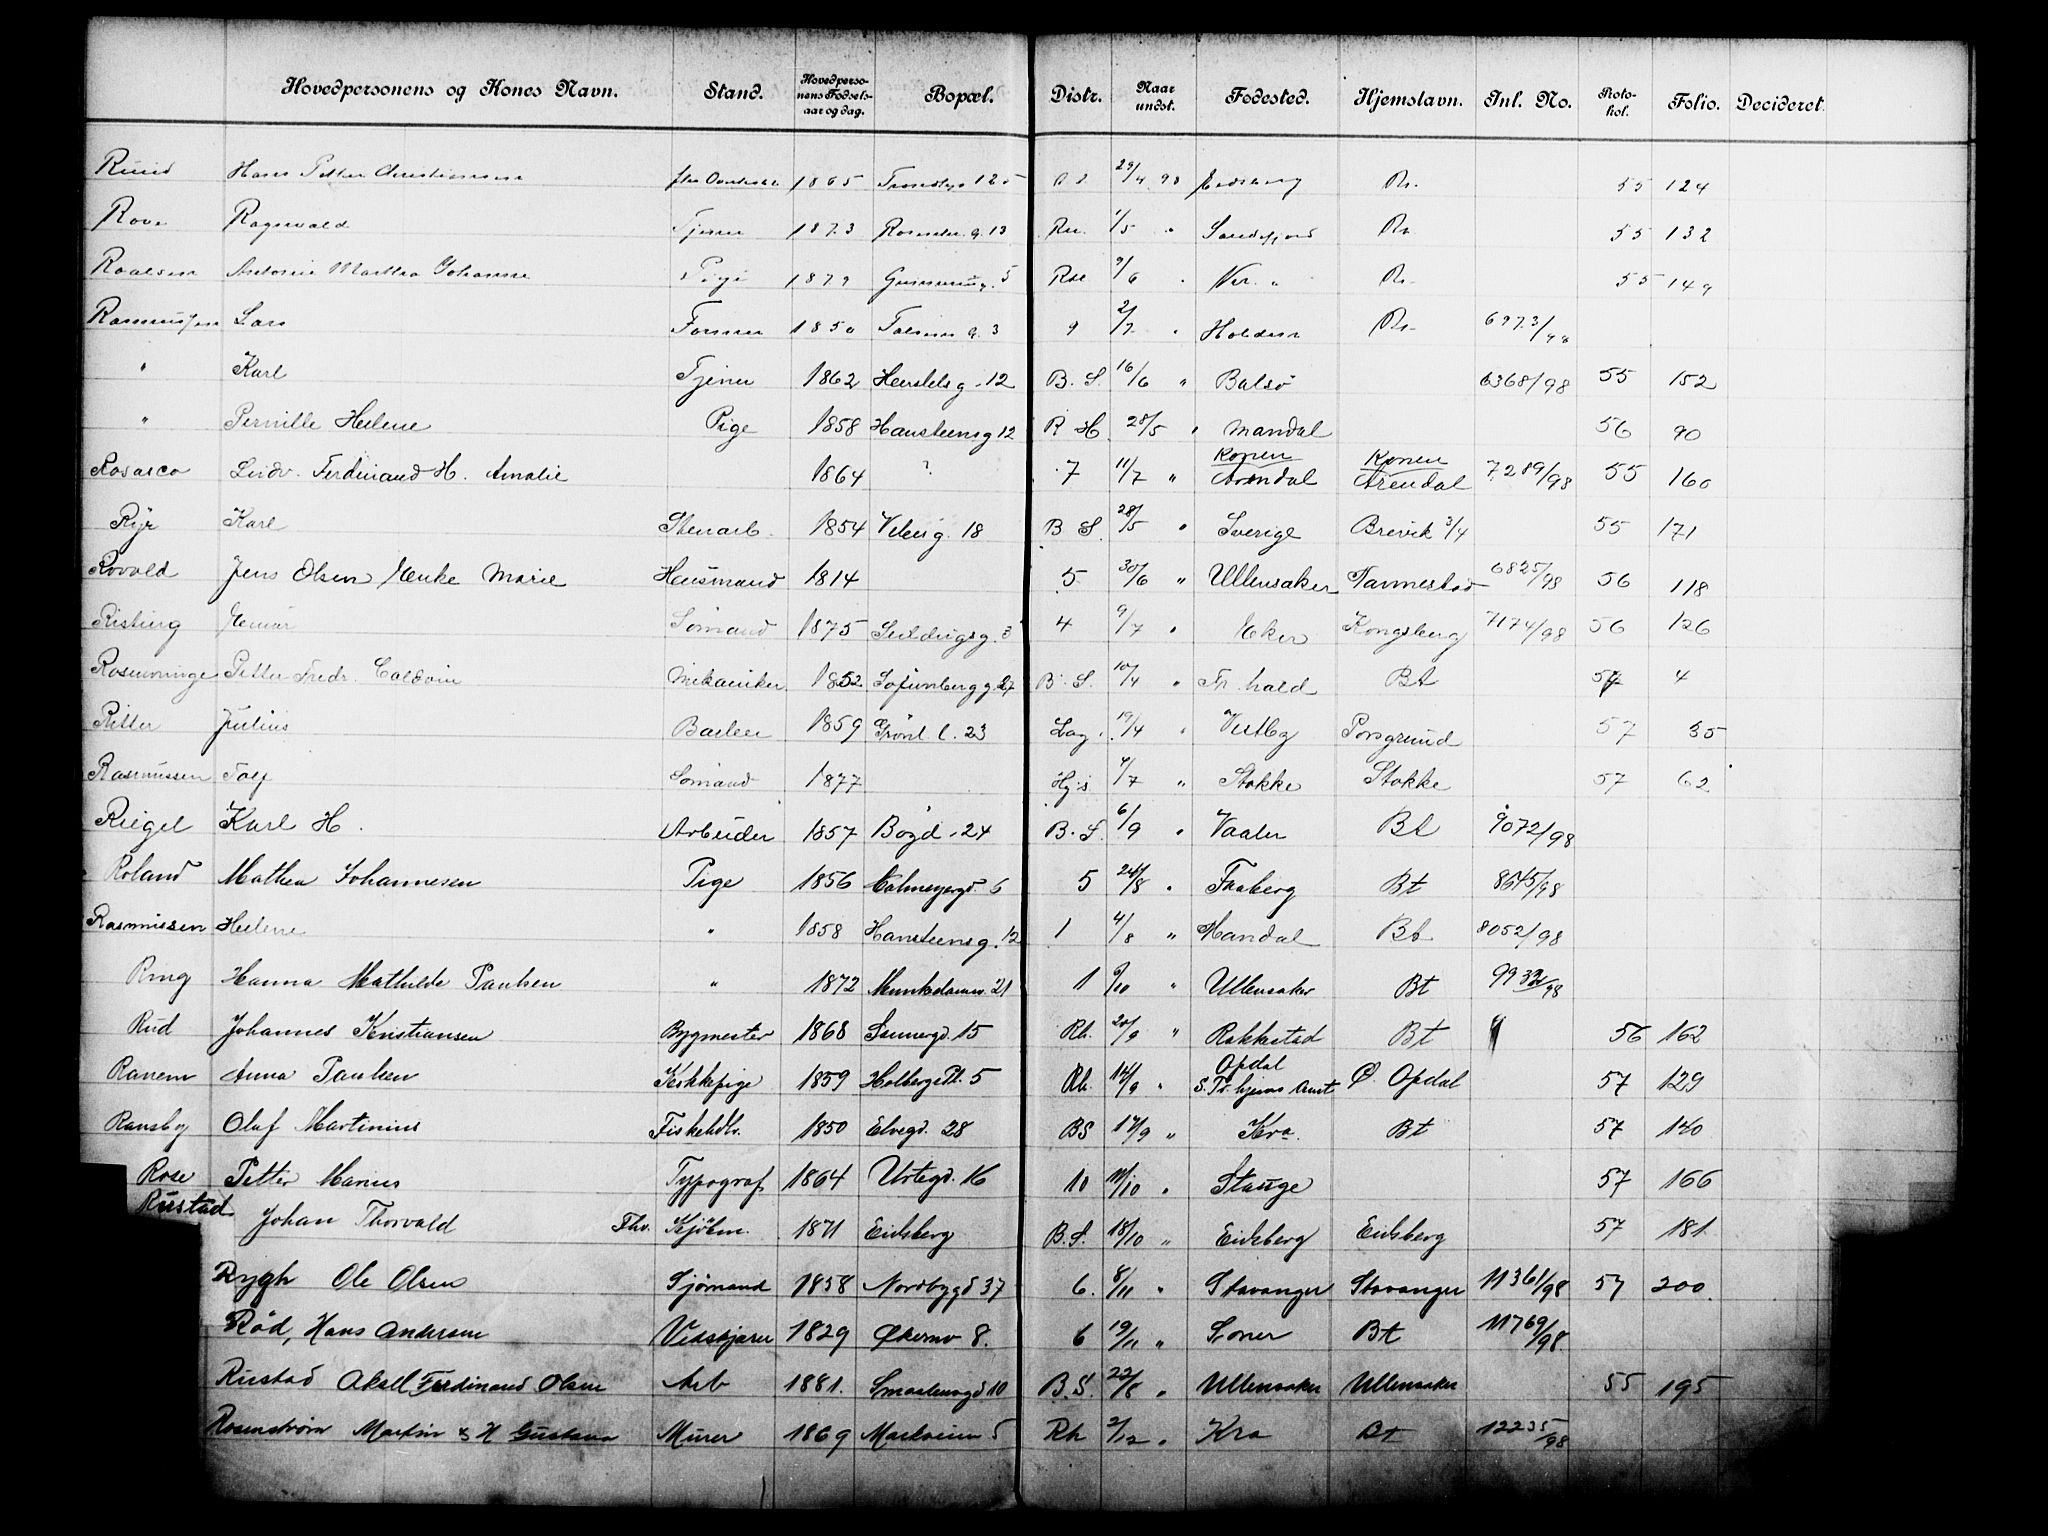 Hovedpersonens og Kones Navn. Stand. Hovedpersonens Fødselsaar og dag. Bopæl. Distr. Naar undst. Fødested. Hjemslavn. Inl. No. Protokol. Folio. Decideret.
Ruud Hans Petter Christiansen 1865 125 29/4 98 Eidsberg 55 124
Rove Ragnvald Tjener 1873 13 Rh. 1/5 " Sandefjord 55 132
Roalsen Antonie Martha Johanne Pige 1879 5 9/6 " 55 149
Rasmussen Lars Former 1850 3 9 2/7 " Holden 6973/98
" Karl Tjener 1862 Herslebsg. 12 B. S. 16/6 " Balsø 6368/98 55 152
" Pernille Helene Pige 1858 Hansteensg 12 R H. 28/5 " Mandal 56 90
Rosasco Ludv. Ferdinand H. Amalie 1864 ? 7 11/7 " Konen Arendal Konen Arendal 7289/98 55 160
Ryr Karl Stenarb. 1854 Vibesg. 18 B S. 28/5 " Sverige Brevik 3/4 55 171
Rovold Jens Olsen, Enke Marie Husmand 1814 5 30/6 " Ullensaker 6825/98 56 118
Risberg Einar Sømand 1875 3 4 9/7 " Eker Kongsberg 7174/98 56 126
Rosenvinge Petter Fredr. Mekaniker 1852 Sofienbergg. 27 B. S. 10/4 " Fr. hald Bt 57 4
Ritter Julius Barber 1859 Grønl. l. 23 Lag. 19/4 " Vestby Porsgrund 57 35
Rasmussen Sømand 1877 7/7 " Stokke Stokke 57 62
Riegel Karl H. Arbeider 1857 Bogd. 24 B. S. 6/9 " Vaaler Bt 9072/98
Roland Mathea Johannesen Pige 1856 Calmeyergd 6 5 24/8 " Faaberg Bt 8645/98
Rasmussen Helene " 1858 Hansteensg. 12 1 4/8 " Mandal Bt 8052/98
Ring Hanna Mathilde Paulsen " 1872 Munkedamsv. 21 1 6/10 " Ullensaker Bt 9932/98
Rud Johannes Kristiansen Bygmester 1868 15 Rh. 20/9 " Rakkestad Bt 56 162
Ranem Anna Paulsen Kokkepige 1859 Holbergs Pl. 5 Rh. 14/9 " Opdal S. Tr. hjems Amt Opdal 57 129
Ransby Olaf Martinius Fiskehdlr. 1850 Elvegd. 28 BS 17/9 " Kra. Bt 57 140
Rose Petter Marius Typograf 1864 Urtegd. 16 10 11/10 " Stange 57 166
Rustad Johan Thorvald Fhv. Kjøbm. 1871 Eidsberg B. S. 18/10 " Eidsberg Eidsberg 57 181
Rygh Ole Olsen Sjømand 1858 Nordbygd 37 6. 8/11 " Stavanger Stavanger 11361/98 57 200
Rød, Hans Andersen Vedskjærer 1829 Økernv 8. 6 19/11 " Soner Bt 11769/98
Rustad Aksel Ferdinand Olsen Arb 1881. Smaalensgd 10 B. S. 22/8 " Ullensaker Ullensaker 55 195
Rosenstrøm Martin & H Gustava Murer 1869 Markveien 5 Rh 2/12 " Kra Bt 12235/98